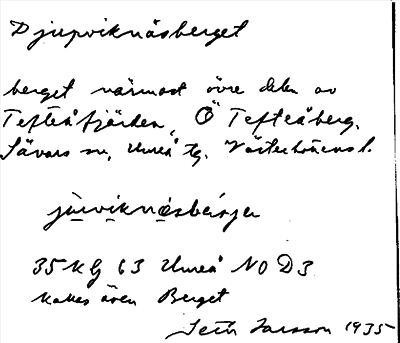 Djupviknäsberget
berget närmast övre delen av
Tefteåfjärden, Ö Tefteåberg.
Sävars sn, Umeå tg. Västerbottens l.
35 KG 63 Umeå NO D3
kallas även Berget
Seth Larsson 1935